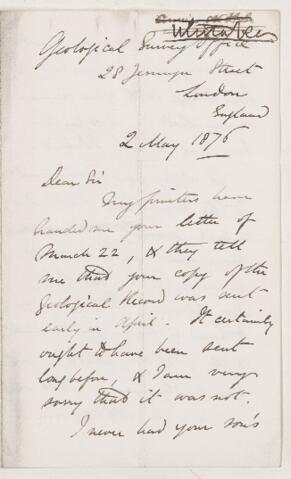 Whitaker
Geological Survey Office
28 Jermyn Street
London
England
2 May 1876
Dear Sir
My printers have
handed me your letter of
March 22, & they tell
me that your copy of the
Geological Record was sent
early in April. It certainly
ought to have been sent
long before, & I am very
sorry that it was not.
I never had your son's